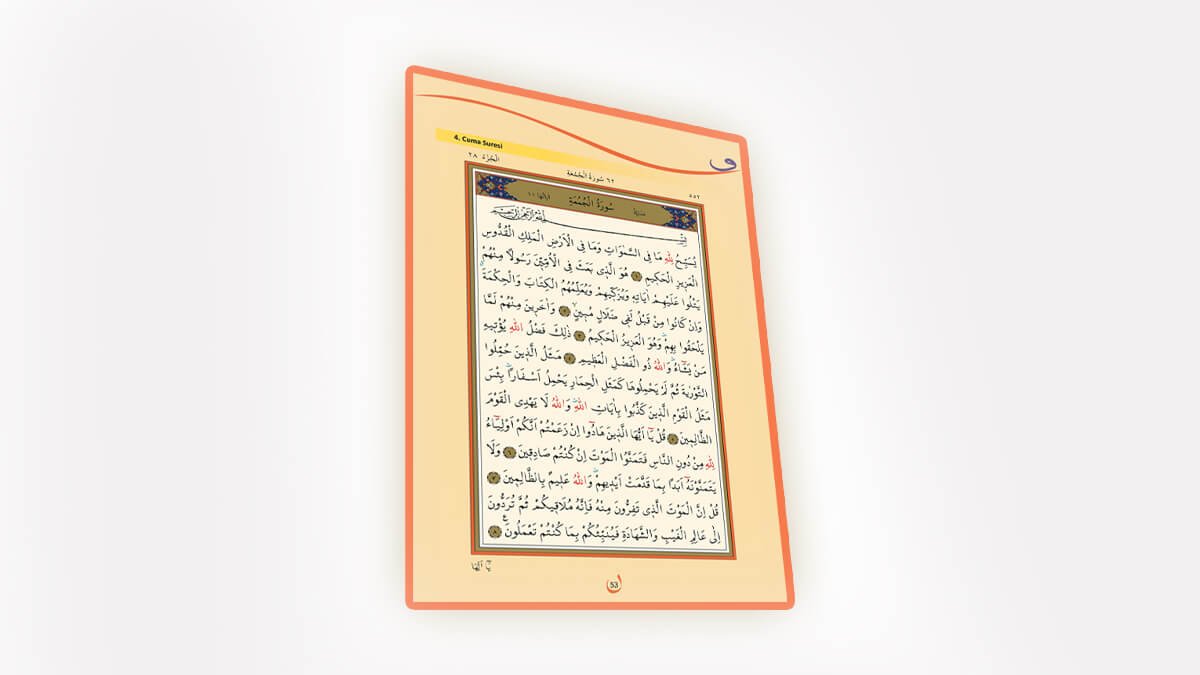 4. Cuma Suresi
اَلْجُزْءُ ٢٨
٦٢ سُورَةُ الْجُمُعَةِ
٥٥٢
مَدَنِيَّةٌ
سُورَةُ الْجُمُعَةِ
اٰيَاتُهَا ١١
بِسْمِ اللّٰهِ الرَّحْمٰنِ الرَّحٖيمِ
يُسَبِّحُ لِلّٰهِ مَا فِى السَّمٰوَاتِ وَمَا فِى الْاَرْضِ الْمَلِكِ الْقُدُّوسِ
الْعَزٖيزِ الْحَكٖيمِ ١ هُوَ الَّذٖى بَعَثَ فِى الْاُمِّيّٖنَ رَسُولًا مِنْهُمْ
يَتْلُوا عَلَيْهِمْ اٰيَاتِهٖ وَيُزَكّٖيهِمْ وَيُعَلِّمُهُمُ الْكِتَابَ وَالْحِكْمَةَ
وَاِنْ كَانُوا مِنْ قَبْلُ لَفٖى ضَلَالٍ مُبٖينٍ ٢ وَاٰخَرٖينَ مِنْهُمْ لَمَّا
يَلْحَقُوا بِهِمْ وَهُوَ الْعَزٖيزُ الْحَكٖيمُ ٣ ذٰلِكَ فَضْلُ اللّٰهِ يُؤْتٖيهِ
مَنْ يَشَٓاءُ وَاللّٰهُ ذُو الْفَضْلِ الْعَظٖيمِ ٤ مَثَلُ الَّذٖينَ حُمِّلُوا
التَّوْرٰيةَ ثُمَّ لَمْ يَحْمِلُوهَا كَمَثَلِ الْحِمَارِ يَحْمِلُ اَسْفَارًا بِئْسَ
مَثَلُ الْقَوْمِ الَّذٖينَ كَذَّبُوا بِاٰيَاتِ اللّٰهِ وَاللّٰهُ لَا يَهْدِى الْقَوْمَ
الظَّالِمٖينَ ٥ قُلْ يَٓا اَيُّهَا الَّذٖينَ هَادُٓوا اِنْ زَعَمْتُمْ اَنَّكُمْ اَوْلِيَٓاءُ
لِلّٰهِ مِنْ دُونِ النَّاسِ فَتَمَنَّوُا الْمَوْتَ اِنْ كُنْتُمْ صَادِقٖينَ ٦ وَلَا
يَتَمَنَّوْنَهُٓ اَبَدًا بِمَا قَدَّمَتْ اَيْدٖيهِمْ وَاللّٰهُ عَلٖيمٌ بِالظَّالِمٖينَ ٧
قُلْ اِنَّ الْمَوْتَ الَّذٖى تَفِرُّونَ مِنْهُ فَاِنَّهُ مُلَاقٖيكُمْ ثُمَّ تُرَدُّونَ
اِلٰى عَالِمِ الْغَيْبِ وَالشَّهَادَةِ فَيُنَبِّئُكُمْ بِمَا كُنْتُمْ تَعْمَلُونَ ٨
يَٓا اَيُّهَا
53